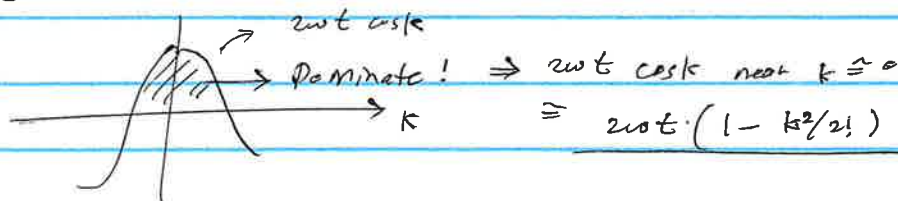 2ωt cosk
Dominate! ⇒ 2ωt cosk near k ≅ 0
k ≅ 2ωt·(1 - k²/2!)